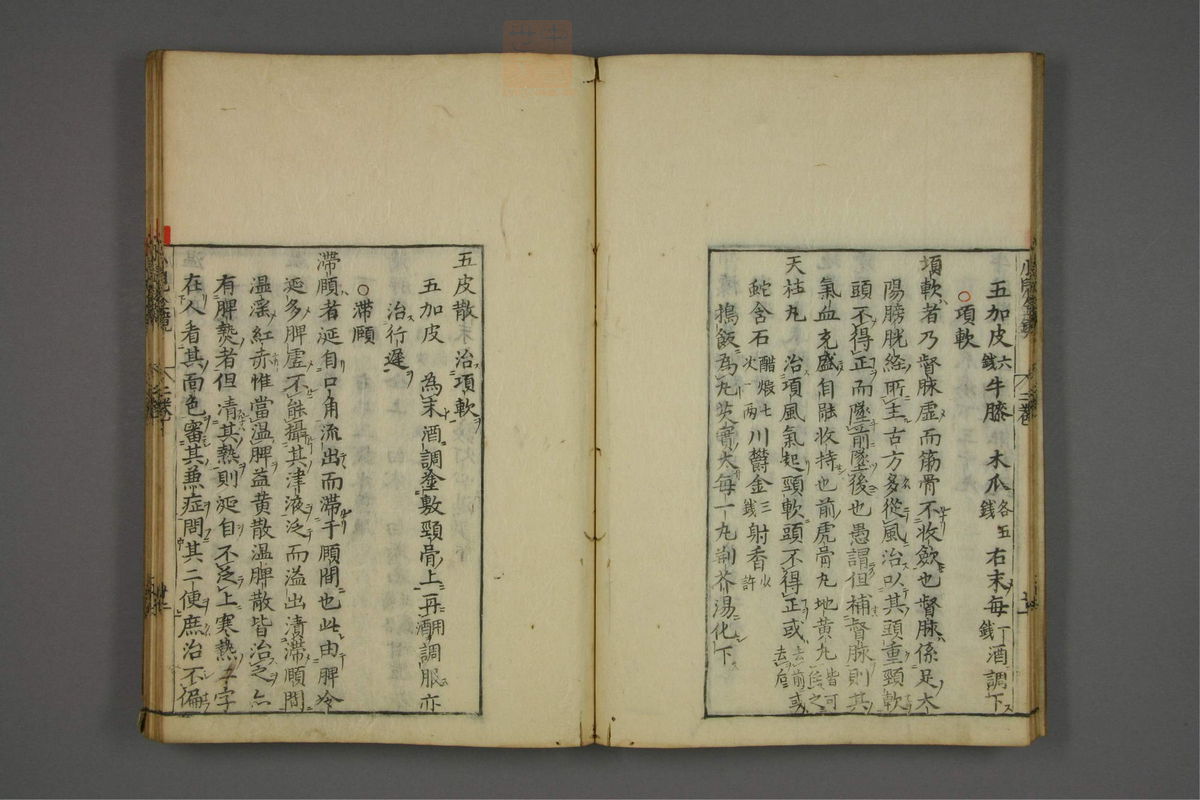 五加皮六錢牛膝 木瓜各五錢右末每一錢酒調下
○項軟
項軟者乃督脉虛而筋骨不收斂也督脉係足太
陽膀胱経所主古方多從風治以其頭重頸軟
頭不得正而墜前墜後也愚謂但補督脉則其
氣血充盛自能收持也前虎骨丸地黄丸皆可
天柱丸 治項風氣起頸軟頭不得正或去前或去后
蛇含石醋煅七火一両川欝金三錢射香少許
搗飯為丸芡實大每一丸荊芥湯化下
五皮散 治項軟
五加皮 為末酒調塗敷頸骨上再用酒調服亦
治行遲
○滞頤
滞頤者涎自口角流出而滞于頤間也此由脾冷
涎多脾虛不能攝其津液泛而溢出漬滞頤間
温滛紅赤惟當温脾益黄散温脾散皆治之亦
有脾熱者但清其熱則涎自不泛上寒熱二字
在人看其面色審其兼症問其二便庶治不偏